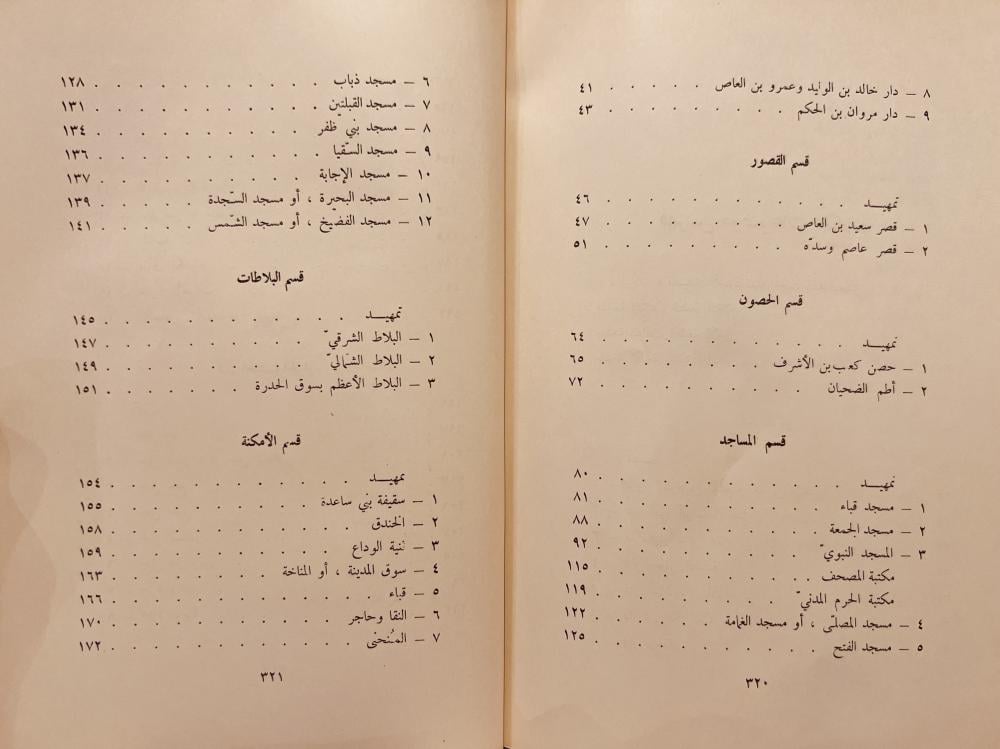 ٨ – دار خالد بن الوليد وعمرو بن العاص . . . . . ٤١
٩ – دار مروان بن الحكم . . . . . . . . ٤٣
قسم القصور
تمهيـــد . . . . . . . . . . . . ٤٦
١ – قصر سعيد بن العاص . . . . . . . . ٤٧
٢ – قصر عاصم وسدّه . . . . . . . . . ٥١
قسم الحصون
تمهيـــد . . . . . . . . . . . . ٦٤
١ – حصن كعب بن الأشرف . . . . . . . ٦٥
٢ – أطم الضحيان . . . . . . . . . ٧٢
قسم المساجد
تمهيـــد . . . . . . . . . . . . ٨٠
١ – مسجد قباء . . . . . . . . . . ٨١
٢ – مسجد الجمعة . . . . . . . . . ٨٨
٣ – المسجد النبويّ . . . . . . . . . ٩٢
مكتبة المصحف . . . . . . . . . ١١٥
مكتبة الحرم المدنيّ . . . . . . . . ١١٩
٤ – مسجد المصلّى ، أو مسجد الغمامة . . . . . ١٢٢
٥ – مسجد الفتح . . . . . . . . . ١٢٥
٣٢٠
٦ – مسجد ذباب . . . . . . . . . . ١٢٨
٧ – مسجد القبلتين . . . . . . . . . ١٣١
٨ – مسجد بني ظفر . . . . . . . . . ١٣٤
٩ – مسجد السّقيا . . . . . . . . . . ١٣٦
١٠ – مسجد الإجابة . . . . . . . . . ١٣٧
١١ – مسجد البحيرة ، أو مسجد السّجدة . . . . . ١٣٩
١٢ – مسجد الفضيخ ، أو مسجد الشّمس . . . . . ١٤١
قسم البلاطات
تمهيـــد . . . . . . . . . . . . ١٤٥
١ – البلاط الشرقيّ . . . . . . . . . ١٤٧
٢ – البلاط الشماليّ . . . . . . . . . ١٤٩
٣ – البلاط الأعظم بسوق الحدرة . . . . . . ١٥١
قسم الأمكنة
تمهيـــد . . . . . . . . . . . . ١٥٤
١ – سقيفة بني ساعدة . . . . . . . . . ١٥٥
٢ – الخندق . . . . . . . . . . . ١٥٨
٣ – ثنية الوداع . . . . . . . . . . ١٥٩
٤ – سوق المدينة ، أو المناخة . . . . . . . ١٦٣
٥ – قباء . . . . . . . . . . . . ١٦٦
٦ – النقا وحاجر . . . . . . . . . . ١٧٠
٧ – المُنحنى . . . . . . . . . . . ١٧٢
٣٢١